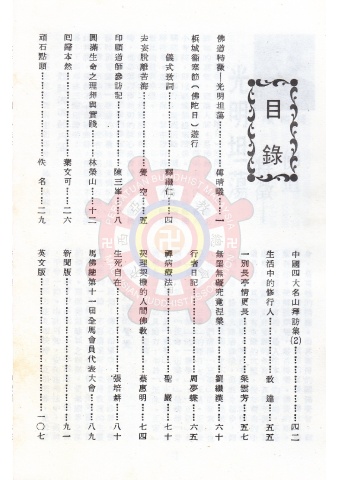 目錄
佛道特徵—光明坦蕩……傅晴曦…一
檳城衛塞節(佛陀日)遊行
儀式致詞……釋繼仁…四
去妄脫離苦海……覺空…五
印順道師參訪記……陳三峯…八
圓滿生命之理想與實踐……林榮山…十二
回歸本然……葉文可…二六
頑石點頭……佚名…二九
中國四大名山禪訪集(2)……四二
生活中的修行人……敎達…五五
一別長亭情更長……梁雲芳…五七
無罣無礙究竟涅槃……劉繼漢…六十
行者日記……周夢蝶…六五
禪病療法……聖嚴…七十
契理契機的人間佛教……蔡惠明…七四
生死自在……張培耕…八十
馬佛總第十一屆全馬會員代表大會……八九
新聞版……九一
英文版……一〇七